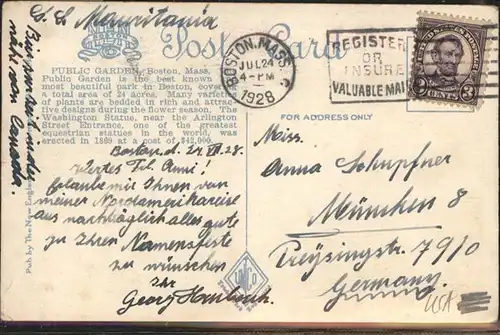 S. S. Mauritania
Post Card
PUBLIC GARDEN, Boston, Mass.
Public Garden is the best known
most beautiful park in Boston, covering
a total area of 24 acres. Many varieties
of plants are bedded in rich and attrac-
tive designs during the flower season. The
Washington Statue, near the Arlington
Street Entrance, one of the greatest
equestrian statues in the world, was
erected in 1869 at a cost of $42,000.
BOSTON, MASS.
JUL 24
4-PM
1928
REGISTER
OR
INSURE
VALUABLE MAIL
UNITED STATES POSTAGE
3 CENTS 3
FOR ADDRESS ONLY
Boston, d. 24. VII. 28.
Wertes Frl. Anni!
Erlaube mir Ihnen von
meiner Nordamerikareise
aus nachträglich alles gute
zu Ihren Namensfeste
zu wünschen
Ihr
Georg
Miss.
Anna Schupfner
München 8
Preysingstr. 79/0
Germany.
USA
Bin wieder
Canada.
Pub by The New England